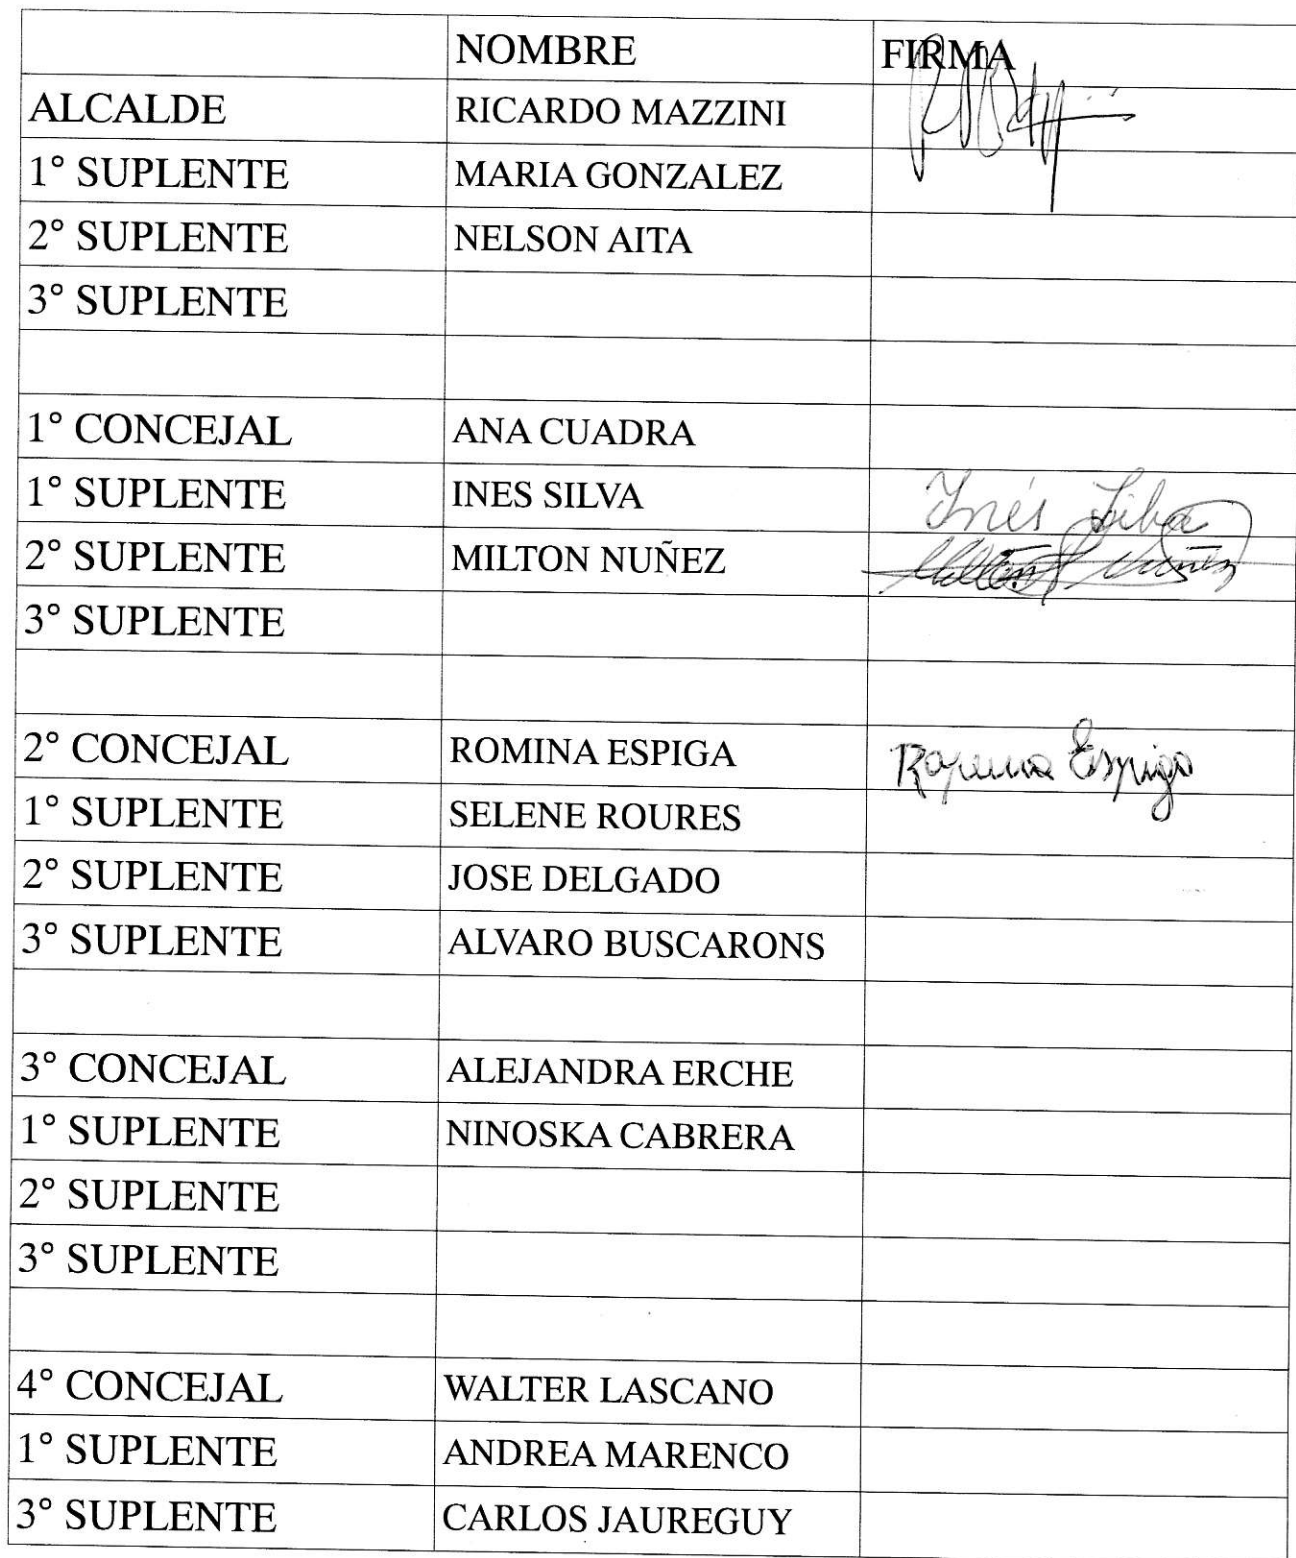 NOMBRE FIRMA
ALCALDE RICARDO MAZZINI
1° SUPLENTE MARIA GONZALEZ
2° SUPLENTE NELSON AITA
3° SUPLENTE
1° CONCEJAL ANA CUADRA
1° SUPLENTE INES SILVA Inés Silva
2° SUPLENTE MILTON NUÑEZ Milton Nuñez
3° SUPLENTE
2° CONCEJAL ROMINA ESPIGA Romina Espiga
1° SUPLENTE SELENE ROURES
2° SUPLENTE JOSE DELGADO
3° SUPLENTE ALVARO BUSCARONS
3° CONCEJAL ALEJANDRA ERCHE
1° SUPLENTE NINOSKA CABRERA
2° SUPLENTE
3° SUPLENTE
4° CONCEJAL WALTER LASCANO
1° SUPLENTE ANDREA MARENCO
3° SUPLENTE CARLOS JAUREGUY